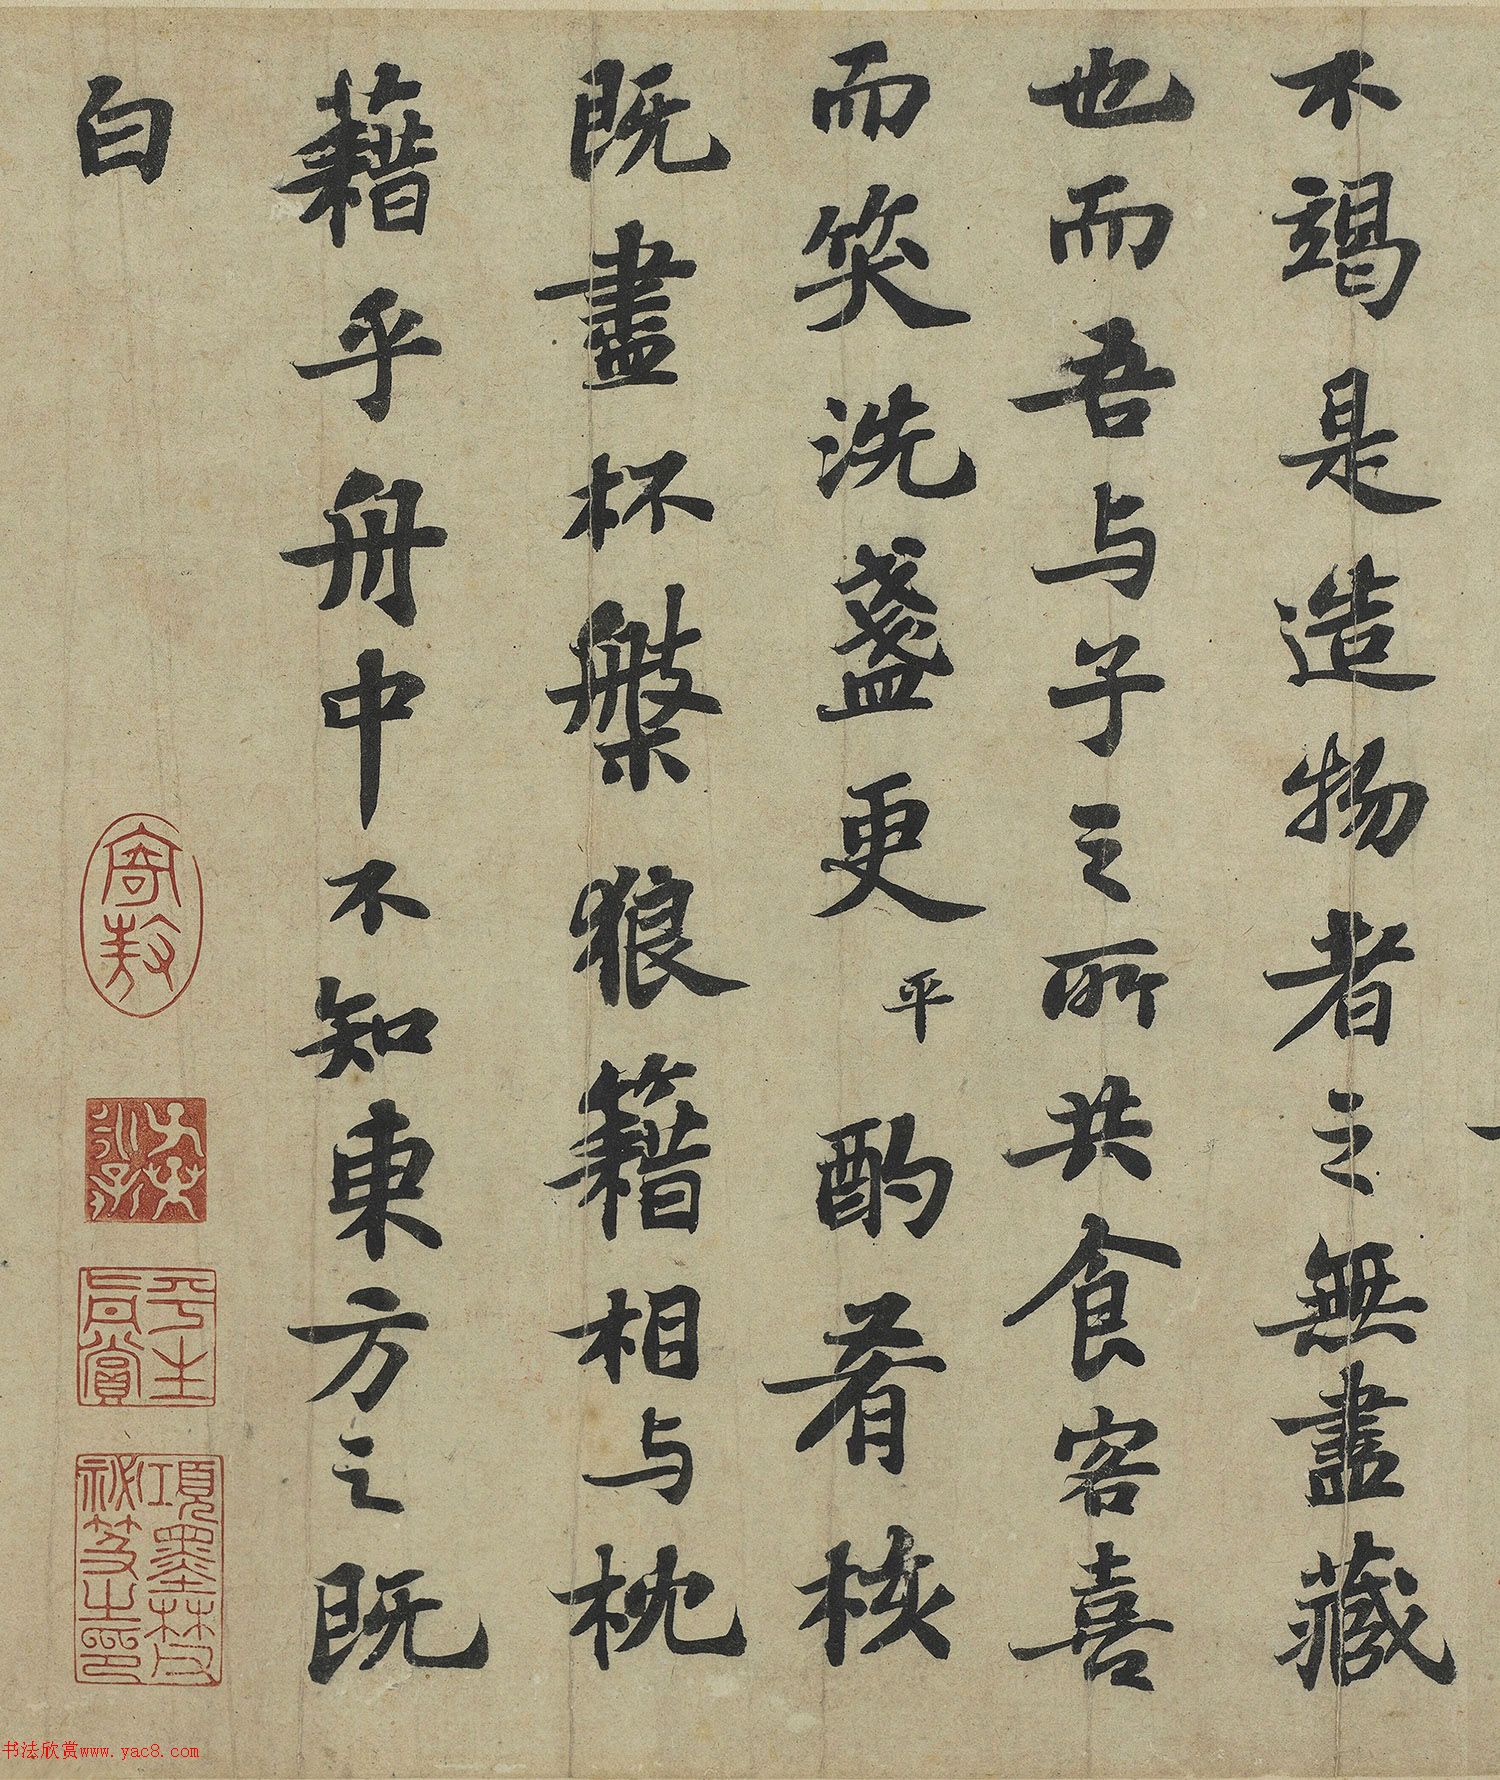 不竭是造物者之無盡藏
也而吾与子之所共食客喜
而笑洗盞更平酌肴核
既盡杯槃狼籍相与枕
藉乎舟中不知東方之既
白
平生真賞
項墨林父祕笈之印
书法欣赏www.yac8.com